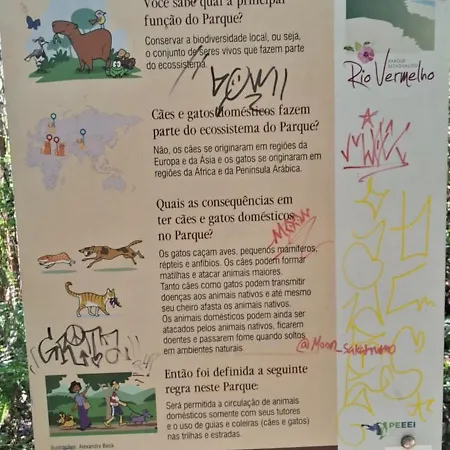 Você sabe qual a principal
função do Parque?
Conservar a biodiversidade local, ou seja,
o conjunto de seres vivos que fazem parte
do ecossistema.
Cães e gatos domésticos fazem
parte do ecossistema do Parque?
Não, os cães se originaram em regiões da
Europa e da Ásia e os gatos se originaram em
regiões da África e da Península Arábica.
Quais as consequências em
ter cães e gatos domésticos
no Parque?
Os gatos caçam aves, pequenos mamíferos,
répteis e anfíbios. Os cães podem formar
matilhas e atacar animais maiores.
Tanto cães como gatos podem transmitir
doenças aos animais nativos e até mesmo
seu cheiro afasta os animais nativos.
Os animais domésticos podem ainda ser
atacados pelos animais nativos, ficarem
doentes e passarem fome quando soltos
em ambientes naturais.
@Moon_sakamano
Então foi definida a seguinte
regra neste Parque:
Será permitida a circulação de animais
domésticos somente com seus tutores
e o uso de guias e coleiras (cães e gatos)
nas trilhas e estradas.
Ilustrações: Alexandra
PARQUE ESTADUAL DO
Rio Vermelho